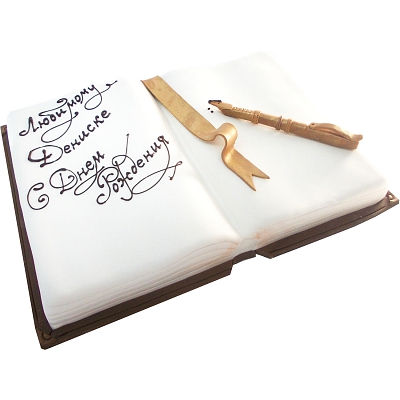 Любимому
Дениске
С Днем
Рождения